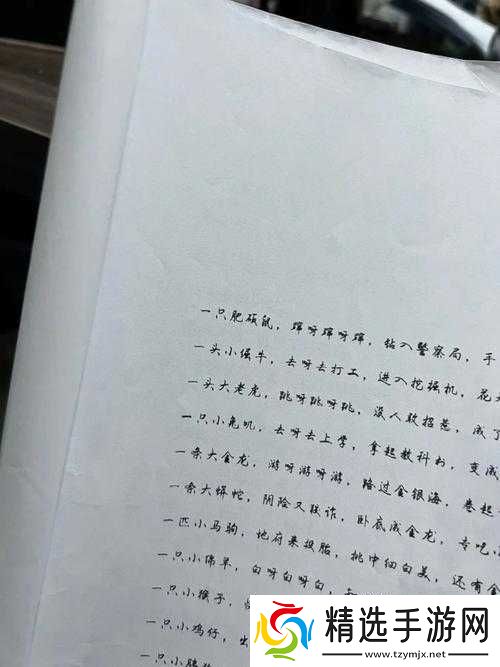 一只肥硕鼠，蹿呀蹿呀蹿，钻入警察局，手
一头小强牛，去呀去打工，进入挖掘机，花
一头大老虎，跳呀跳呀跳，没人敢招惹，成了
一只小兔叽，去呀去上学，拿起教科书，变成
一条大金龙，游呀游呀游，路过金银海，卷起
一条大蟒蛇，阴险又狡诈，卧底成金龙，专吃
一匹小马驹，地府来投胎，挑中细白美，还有金
一只小绵羊，白呀白呀白，
一只小猴子，
一只小鸡仔，出
一只小
精选手游网
www.tzymjx.net